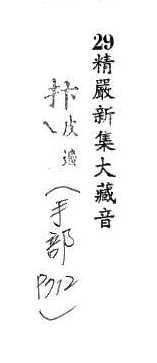 29精嚴新集大藏音
抃、皮遍(手部P712)